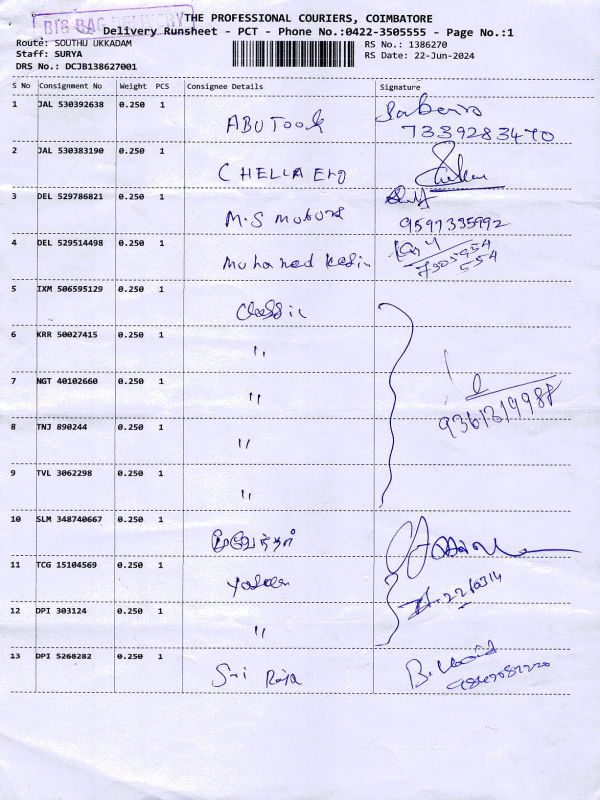 BIG BAG DELIVERY
THE PROFESSIONAL COURIERS, COIMBATORE
Delivery Runsheet - PCT - Phone No.:0422-3505555 - Page No.:1
Route: SOUTHU UKKADAM RS No.: 1386270
Staff: SURYA RS Date: 22-Jun-2024
DRS No.: DCJB138627001
S No Consignment No Weight PCS Consignee Details Signature
1 JAL 530392638 0.250 1 ABU Took
7339283470
2 JAL 530383190 0.250 1 CHELLA
3 DEL 529786821 0.250 1 M.S
9597335992
4 DEL 529514498 0.250 1 Mohamed
7305954
554
5 IXM 506595129 0.250 1 Classic
6 KRR 50027415 0.250 1 "
7 NGT 40102660 0.250 1 "
9361319988
8 TNJ 890244 0.250 1 "
9 TVL 3062298 0.250 1 "
10 SLM 348740667 0.250 1
11 TCG 15104569 0.250 1
12 DPI 303124 0.250 1 "
13 DPI 5268282 0.250 1 Sri Raja
B.